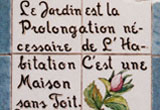 Le Jardin est la
Prolongation né-
cessaire de L'Ha-
bitation C'est une
Maison
sans Toit.